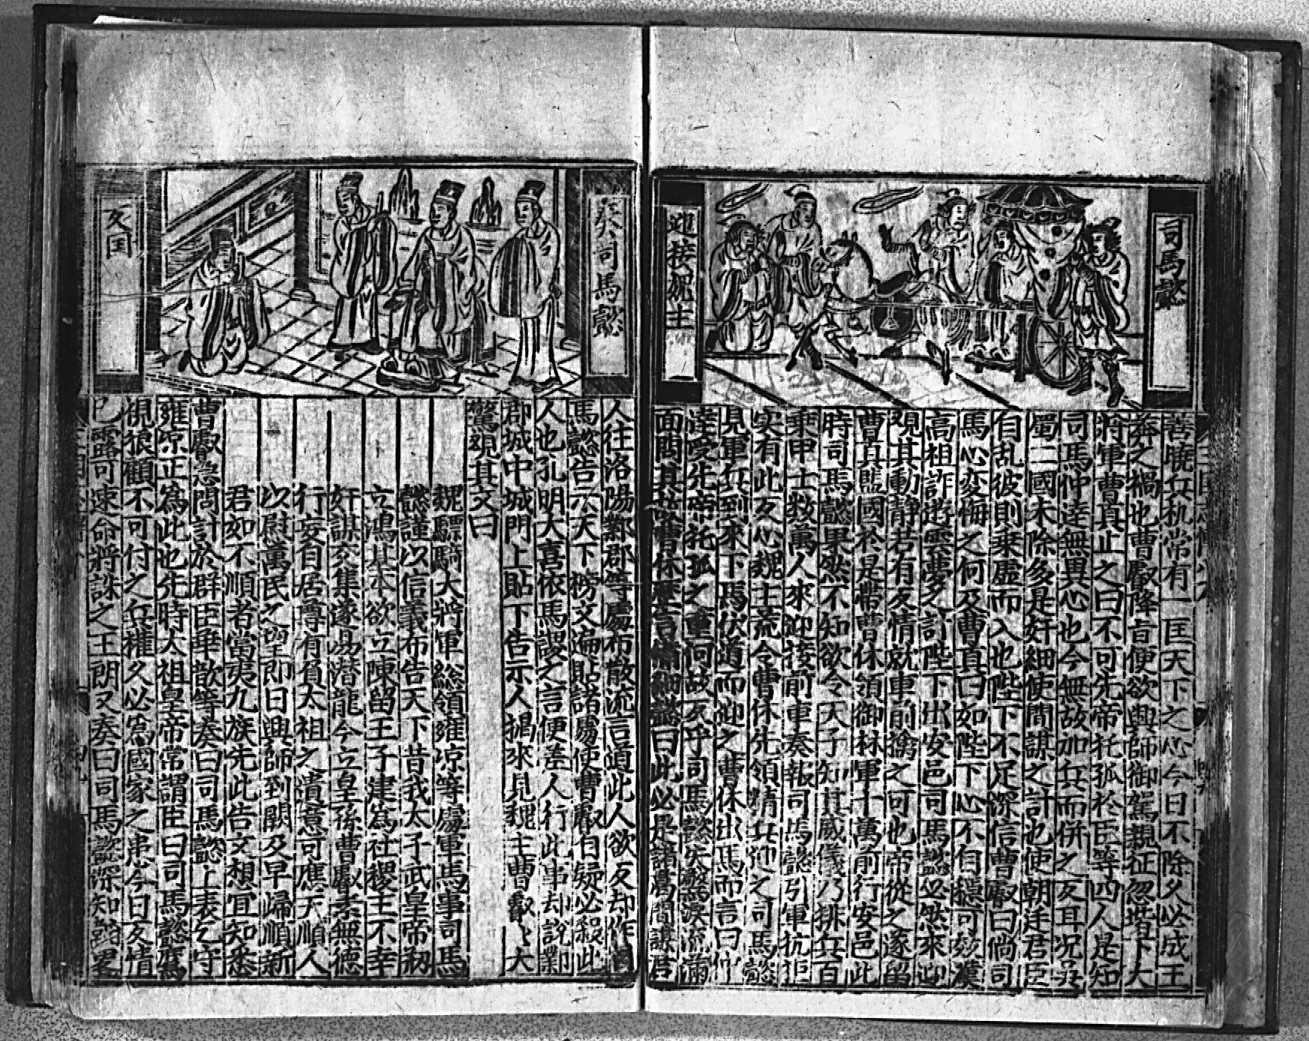 奏人司馬懿
反国
人往洛陽鄴郡等處布散流言道此人欲反却作司
馬懿告示天下榜文遍貼諸處使曹叡自疑必殺此
人也孔明大喜依馬謖之言便差人行此事却說鄴
郡城中城門上貼下告示人揭來見魏主曹叡叡大
驚覩其文曰
魏驃騎大將軍総領雍凉等處軍馬事司馬
懿謹以信義布告天下昔我太子武皇帝刱
立鴻基本欲立陳留王子建為社稷主不幸
奸謀交集遂易潛龍今立皇孫曹叡素無德
行妄自居尊有負太祖之遺意可應天順人
以慰萬民之望即日興師到闕及早歸順新
君如不順者當夷九族先此告文想宜知悉
曹叡急問計於群臣華歆等奏曰司馬懿上表乞守
雍凉正為此也先時太祖皇帝常謂臣曰司馬懿鷹
視狼顧不可付之兵權久必為國家之患今日反情
已露可速命將誅之王朗又奏曰司馬懿深知韜畧
司馬懿
迎接魏主
善曉兵机常有一匡天下之心今日不除久必成王
莽之禍也曹叡降旨便欲興師御駕親征忽堦下大
將軍曹真止之曰不可先帝托孤於臣等四人是知
司馬仲達無異心也今無故加兵而併之反耳况吳
蜀二國未除多是奸細使間諜之計也使朝廷君臣
自乱彼則乗虛而入也陛下不足深信曹叡曰倘司
馬心変悔之何及曹真曰如陛下心不自穏可效漢
高祖詐遊雲夢之計陛下出安邑司馬懿必然來迎
覌其動静若有反情就車前擒之可也帝從之遂留
曹真監國於是帶曹休領御林軍十萬前行安邑此
時司馬懿果然不知欲令天子知其威儀乃排兵百
乗甲士数萬人來迎接前車奏報司馬懿引軍抗拒
实有此反心魏主荒令曹休先領精兵迎之司馬懿
見軍兵到來下馬伏道而迎之曹休出馬而言曰仲
達受先帝托孤之重何故反乎司馬懿失驚淚流滿
面問其故曹休歴言備細懿曰此必是諸葛間諜君